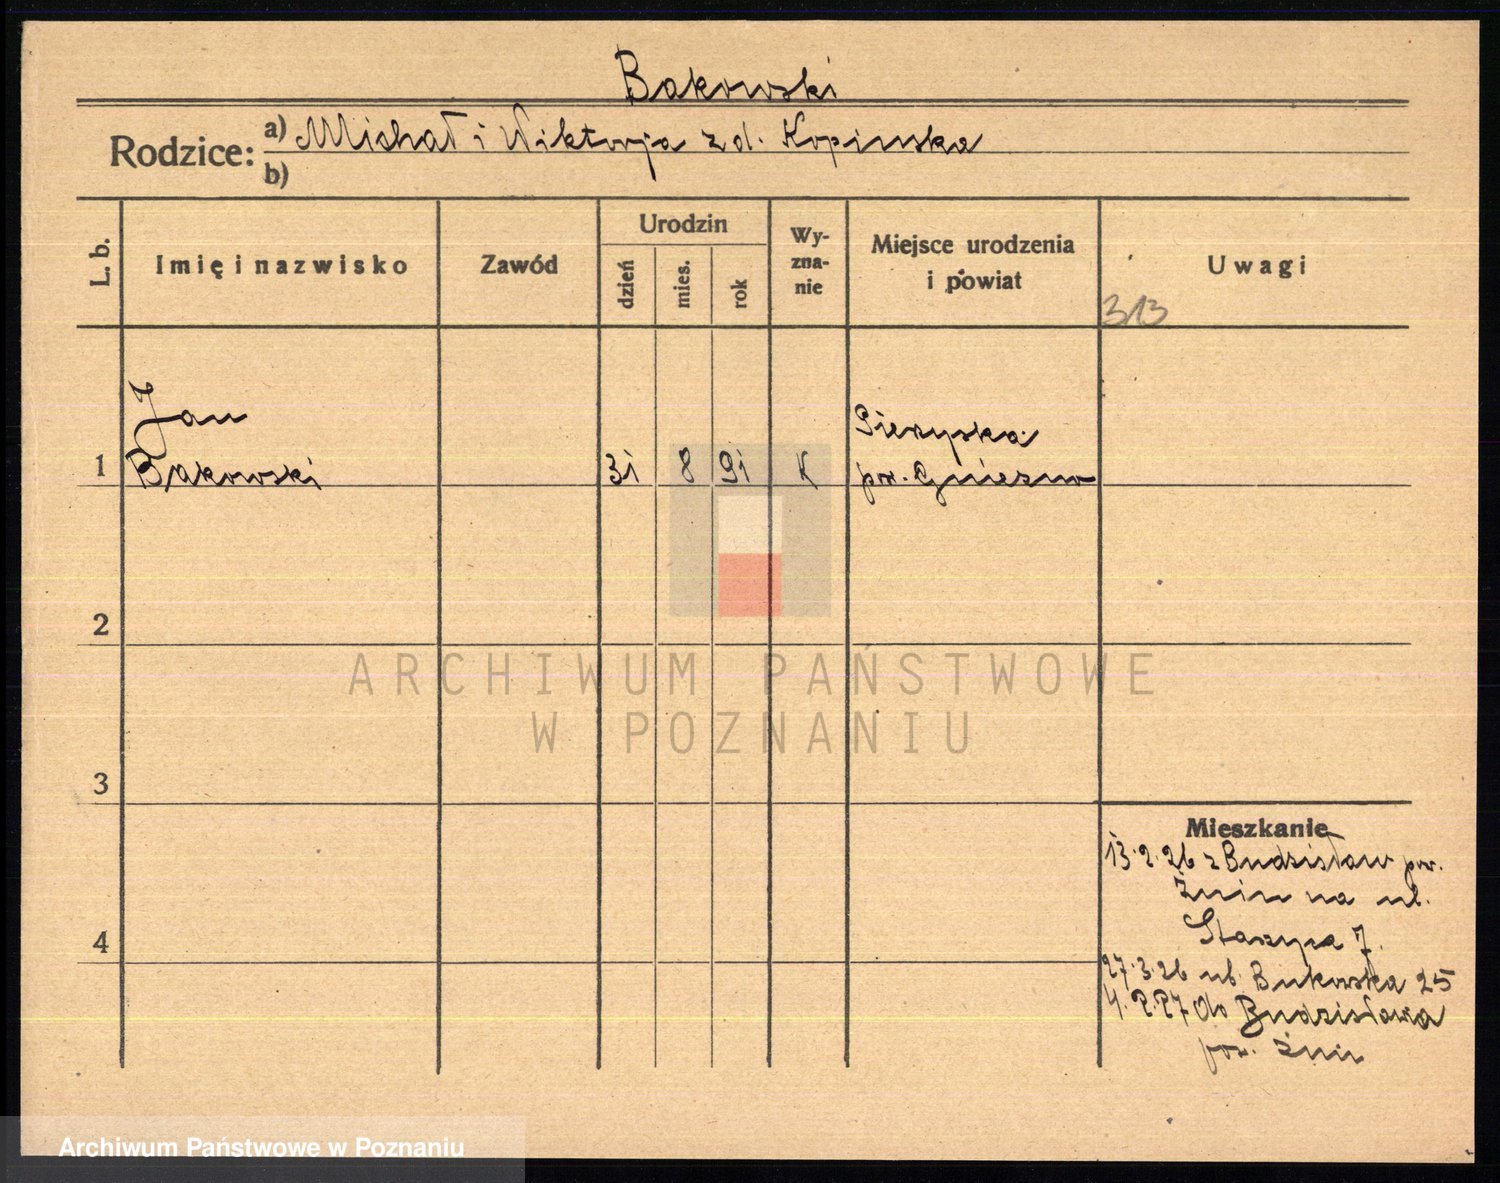 Bakowski
Rodzice: a) Michał i Wiktorja z d. Kopinska
b)
L. b.
Imię i nazwisko
Zawód
Urodzin
dzień
mies.
rok
Wy-
zna-
nie
Miejsce urodzenia
i powiat
Uwagi
313
Jan
1 Bąkowski 31 8 91 K
pow. Gniezno
2
ARCHIWUM PAŃSTWOWE
W POZNANIU
3
Mieszkanie
13.2.26 z Budzisław pow.
Żnin na ul.
7.
4
27.3.26 ul. Bukowska 25
do Budzisławia
pow. Żnin
Archiwum Państwowe w Poznaniu